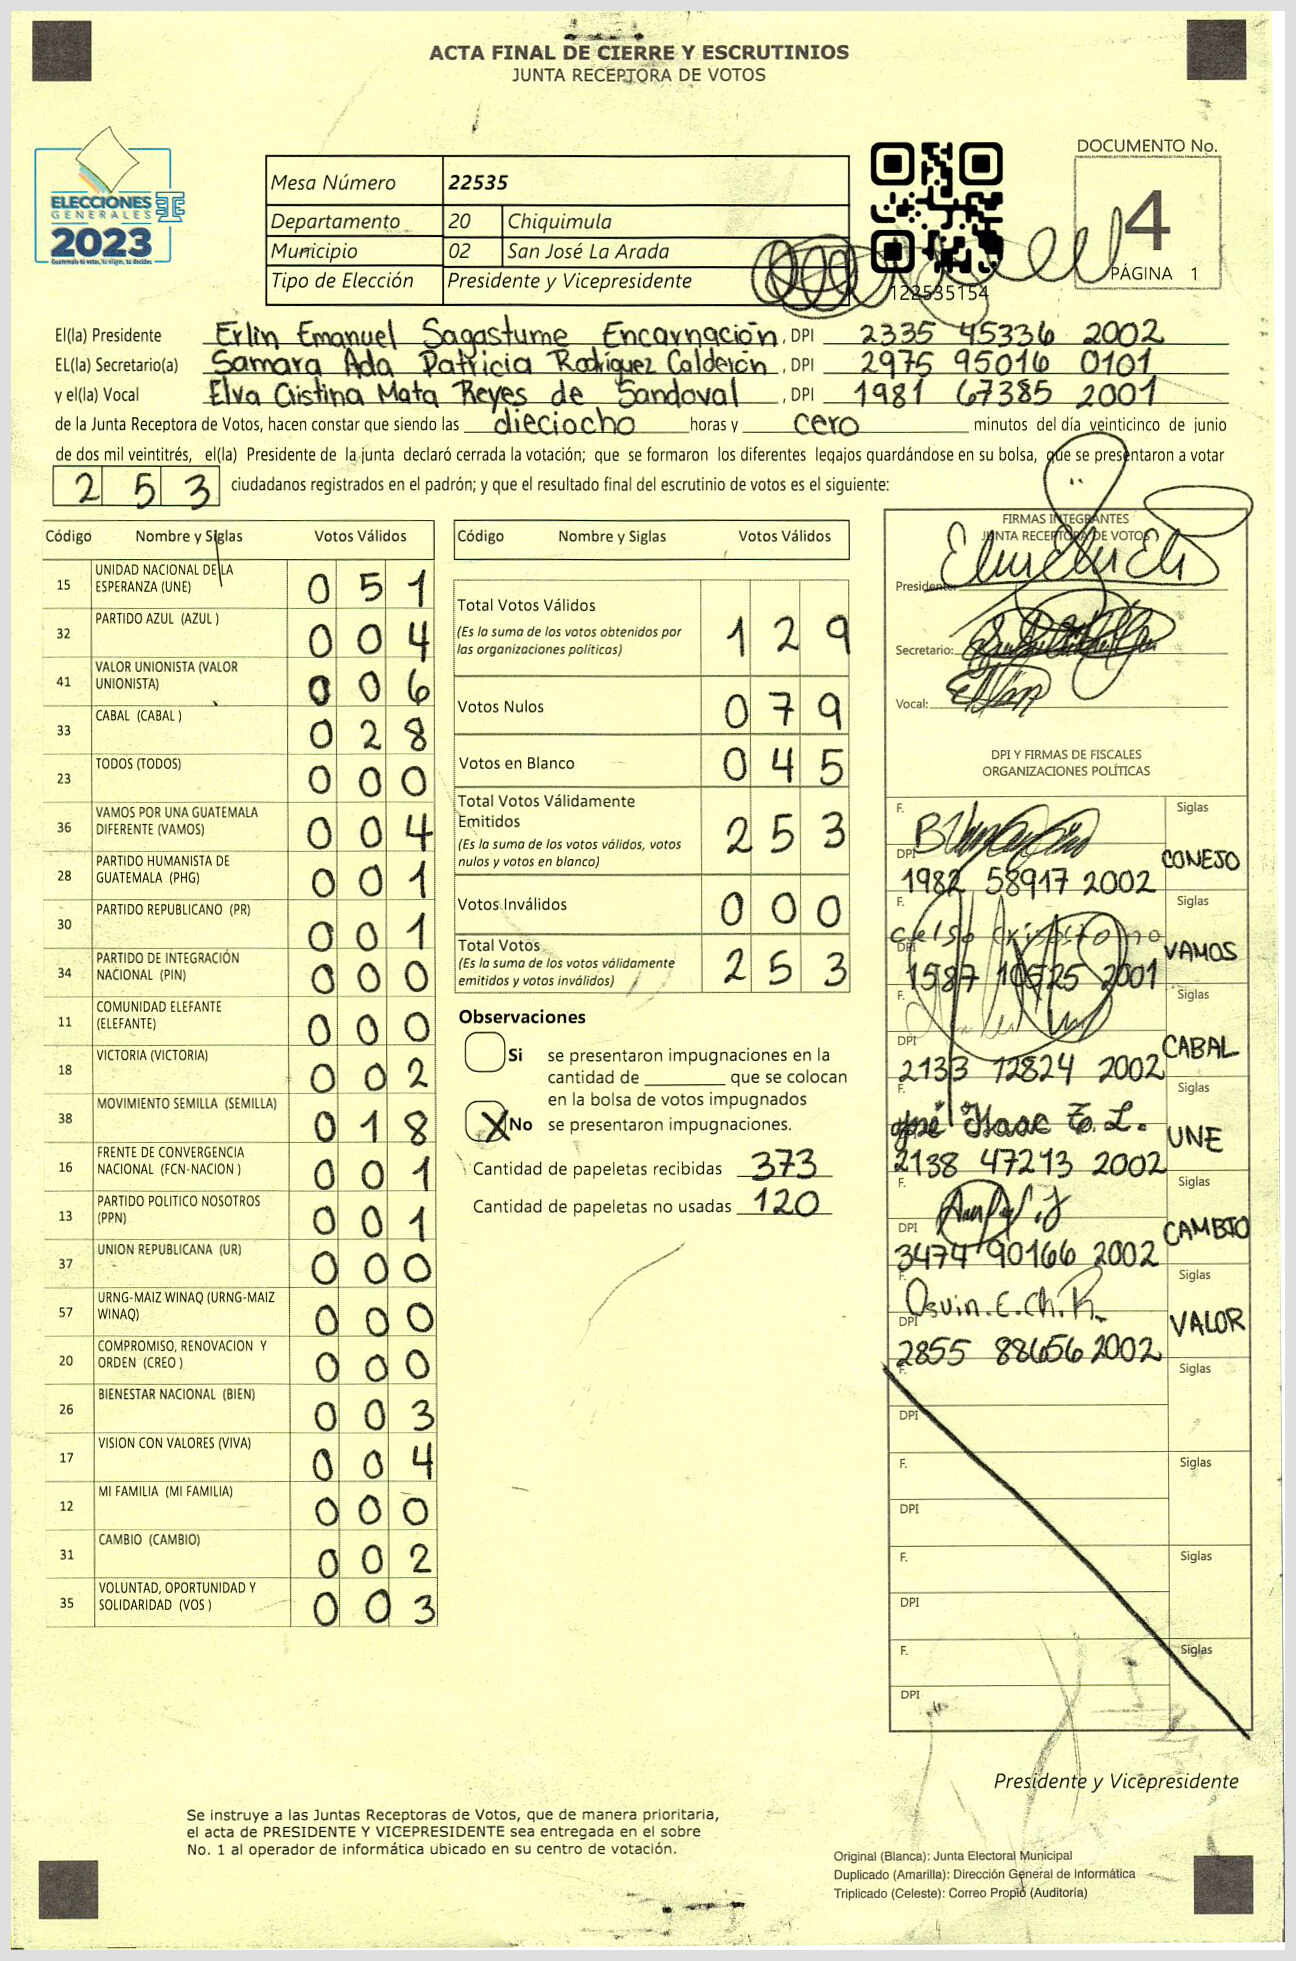 ACTA FINAL DE CIERRE Y ESCRUTINIOS
JUNTA RECEPTORA DE VOTOS
ELECCIONES
GENERALES
2023
Mesa Número 22535
Departamento 20 Chiquimula
Municipio 02 San José La Arada
Tipo de Elección Presidente y Vicepresidente
122535154
DOCUMENTO No.
4
PÁGINA 1
El(la) Presidente Erlin Emanuel Sagastume Encarnación, DPI 2335 45336 2002
EL(la) Secretario(a) Samara Ada Patricia Rodríguez Calderón, DPI 2975 95016 0101
y el(la) Vocal Elva Cristina Mata Reyes de Sandoval, DPI 1981 67385 2001
de la Junta Receptora de Votos, hacen constar que siendo las dieciocho horas y cero minutos del día veinticinco de junio
de dos mil veintitrés, el(la) Presidente de la junta declaró cerrada la votación; que se formaron los diferentes legajos guardándose en su bolsa, que se presentaron a votar
253 ciudadanos registrados en el padrón; y que el resultado final del escrutinio de votos es el siguiente:
Código Nombre y Siglas Votos Válidos
15 UNIDAD NACIONAL DE LA ESPERANZA (UNE) 0 5 1
32 PARTIDO AZUL (AZUL ) 0 0 4
41 VALOR UNIONISTA (VALOR UNIONISTA) 0 0 6
33 CABAL (CABAL ) 0 2 8
23 TODOS (TODOS) 0 0 0
36 VAMOS POR UNA GUATEMALA DIFERENTE (VAMOS) 0 0 4
28 PARTIDO HUMANISTA DE GUATEMALA (PHG) 0 0 1
30 PARTIDO REPUBLICANO (PR) 0 0 1
34 PARTIDO DE INTEGRACIÓN NACIONAL (PIN) 0 0 0
11 COMUNIDAD ELEFANTE (ELEFANTE) 0 0 0
18 VICTORIA (VICTORIA) 0 0 2
38 MOVIMIENTO SEMILLA (SEMILLA) 0 1 8
16 FRENTE DE CONVERGENCIA NACIONAL (FCN-NACION ) 0 0 1
13 PARTIDO POLITICO NOSOTROS (PPN) 0 0 1
37 UNION REPUBLICANA (UR) 0 0 0
57 URNG-MAIZ WINAQ (URNG-MAIZ WINAQ) 0 0 0
20 COMPROMISO, RENOVACION Y ORDEN (CREO ) 0 0 0
26 BIENESTAR NACIONAL (BIEN) 0 0 3
17 VISION CON VALORES (VIVA) 0 0 4
12 MI FAMILIA (MI FAMILIA) 0 0 0
31 CAMBIO (CAMBIO) 0 0 2
35 VOLUNTAD, OPORTUNIDAD Y SOLIDARIDAD (VOS ) 0 0 3
Código Nombre y Siglas Votos Válidos
Total Votos Válidos 1 2 9
(Es la suma de los votos obtenidos por
las organizaciones políticas)
Votos Nulos 0 7 9
Votos en Blanco 0 4 5
Total Votos Válidamente
Emitidos 2 5 3
(Es la suma de los votos válidos, votos
nulos y votos en blanco)
Votos Inválidos 0 0 0
Total Votos 2 5 3
(Es la suma de los votos válidamente
emitidos y votos inválidos)
Observaciones
Si se presentaron impugnaciones en la
cantidad de ________ que se colocan
en la bolsa de votos impugnados
X No se presentaron impugnaciones.
Cantidad de papeletas recibidas 373
Cantidad de papeletas no usadas 120
FIRMAS INTEGRANTES
JUNTA RECEPTORA DE VOTOS
Presidente:
Secretario:
Vocal:
DPI Y FIRMAS DE FISCALES
ORGANIZACIONES POLÍTICAS
F. Siglas
DPI 1982 58917 2002 CONEJO
F. Siglas
DPI 1587 10525 2001 VAMOS
F. Siglas
DPI 2133 12824 2002 CABAL
F. Siglas
2138 47213 2002 UNE
F. Siglas
DPI 3474 90166 2002 CAMBIO
F. Osvin.E.Ch.R. Siglas
DPI 2855 88656 2002 VALOR
F. Siglas
DPI
F. Siglas
DPI
F. Siglas
DPI
F. Siglas
DPI
Presidente y Vicepresidente
Se instruye a las Juntas Receptoras de Votos, que de manera prioritaria,
el acta de PRESIDENTE Y VICEPRESIDENTE sea entregada en el sobre
No. 1 al operador de informática ubicado en su centro de votación.
Original (Blanca): Junta Electoral Municipal
Duplicado (Amarilla): Dirección General de Informática
Triplicado (Celeste): Correo Propio (Auditoría)